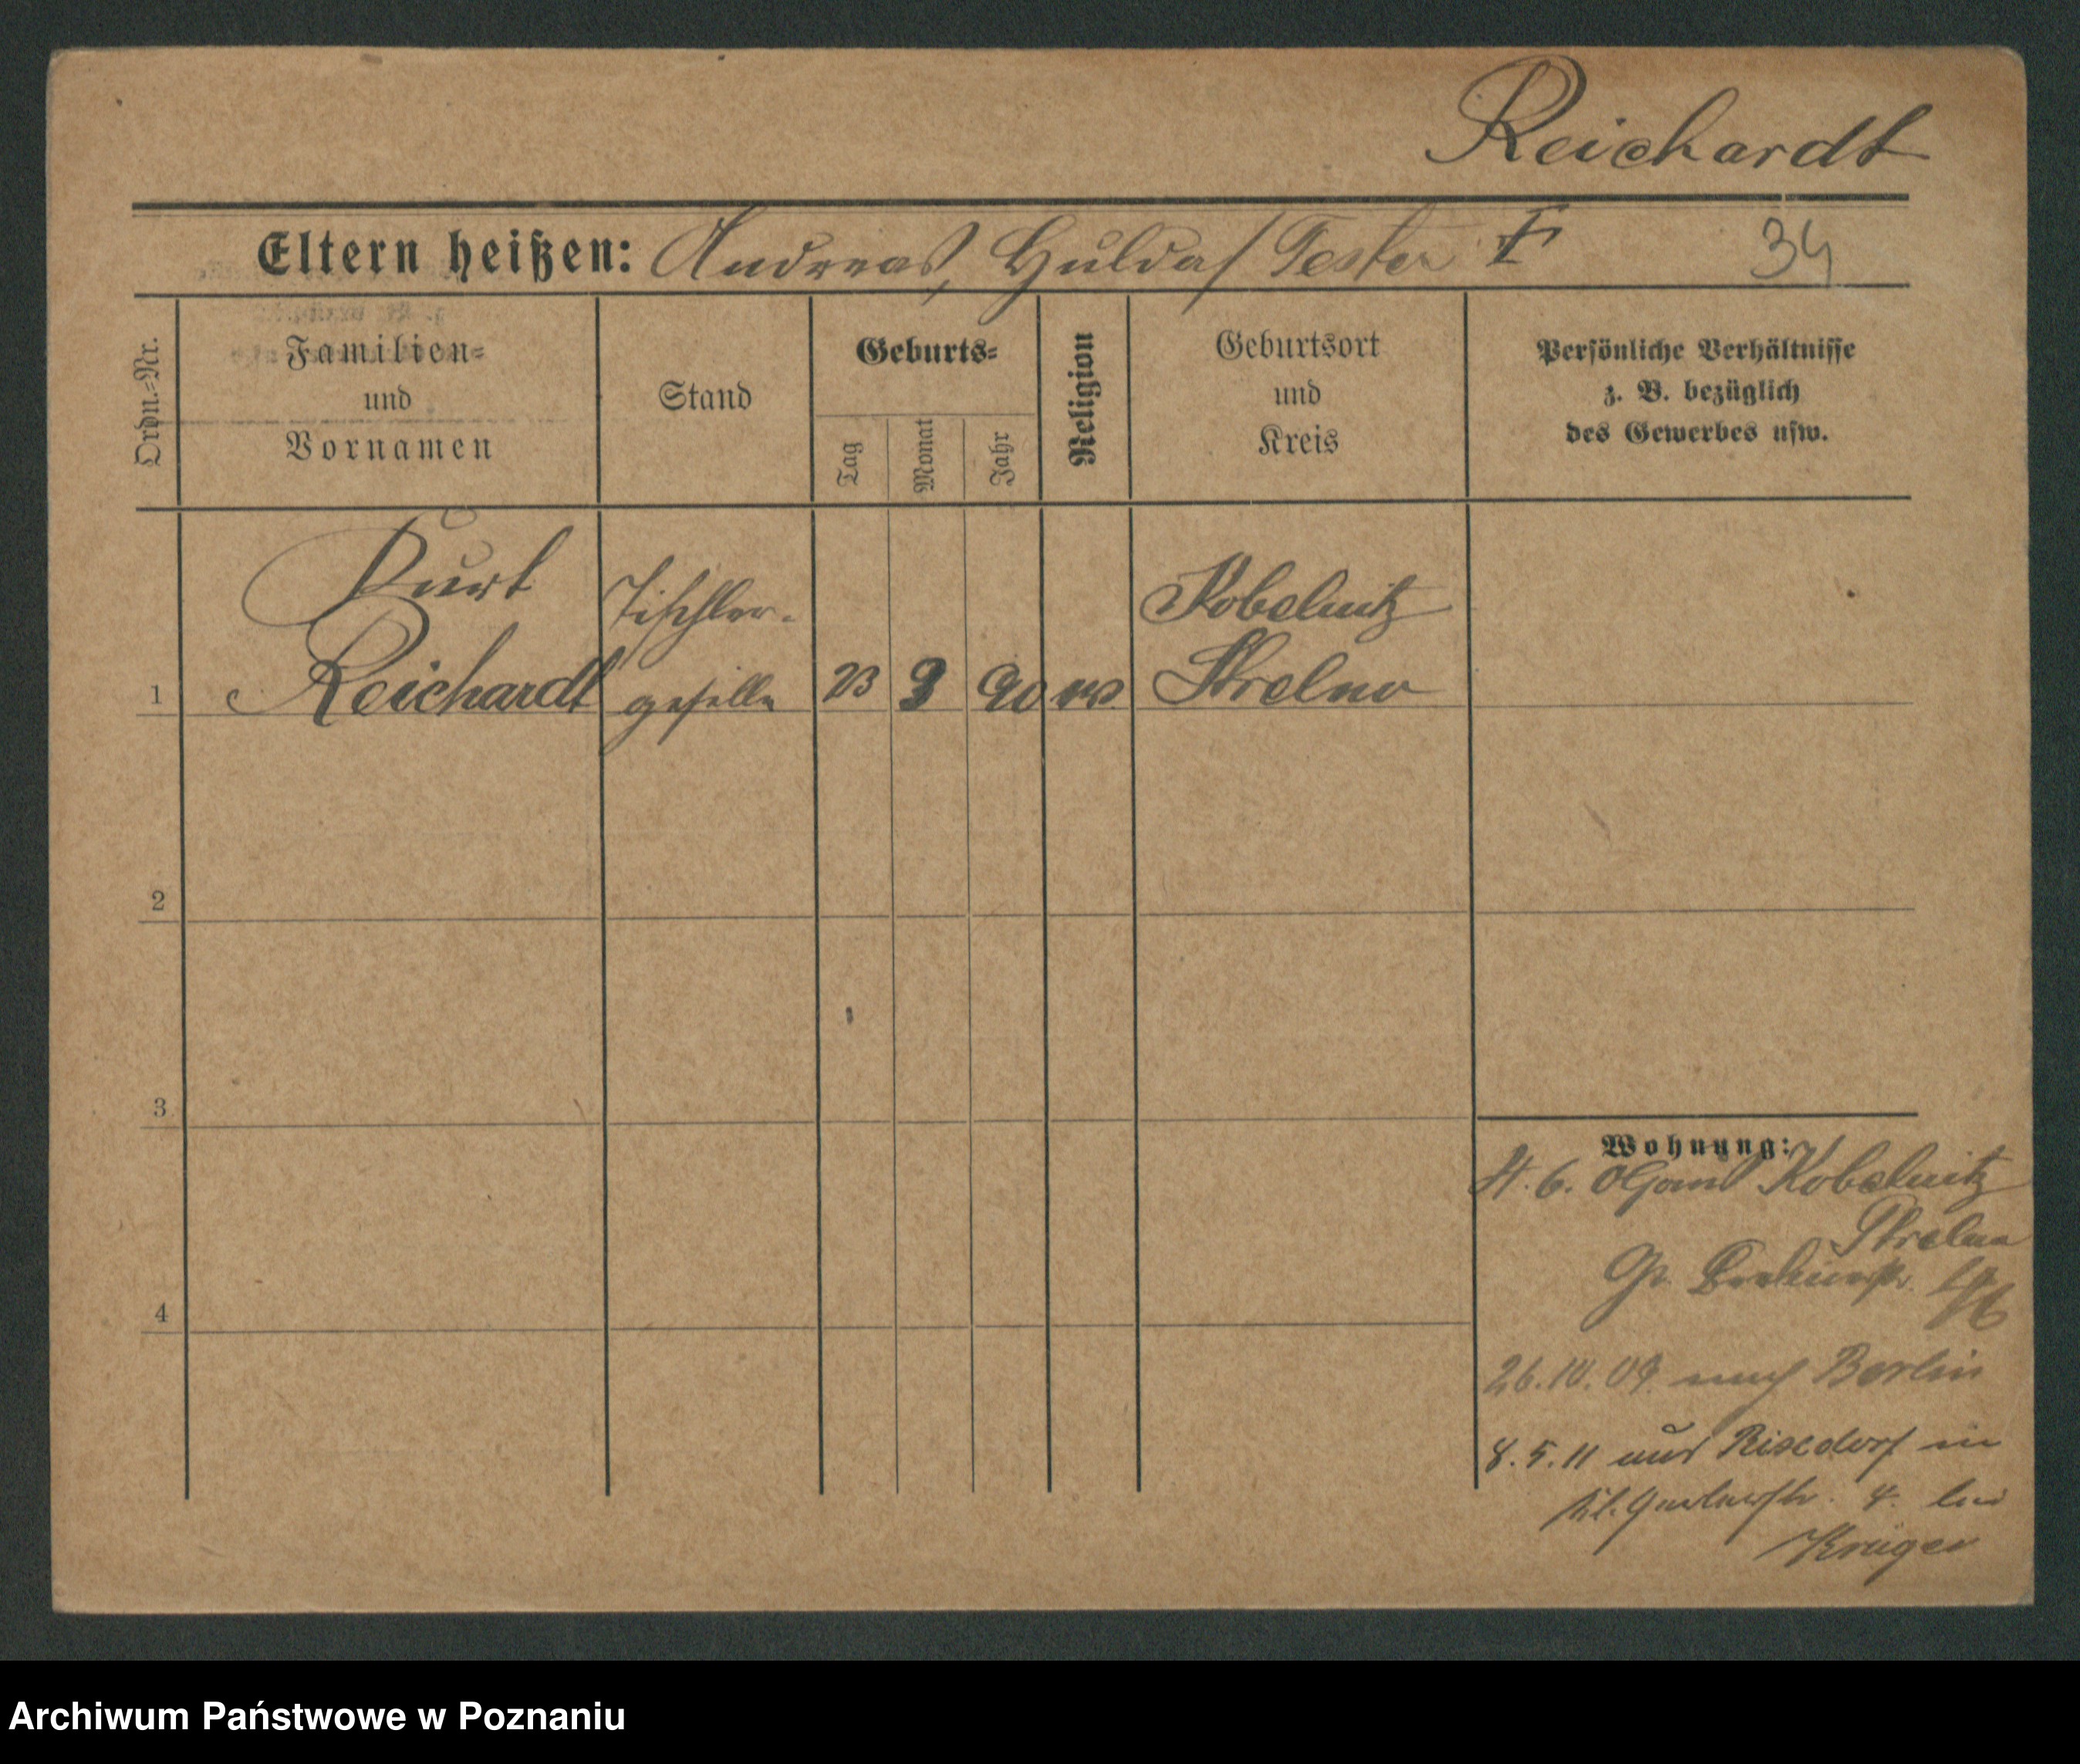 Reichardt
Eltern heißen: Andreas, Hulda / Tester 34
Ordn.-Nr.
Familien-
und
Vornamen
Stand
Geburts-
Tag
Monat
Jahr
Religion
Geburtsort
und
Kreis
Persönliche Verhältnisse
z. B. bezüglich
des Gewerbes usw.
Kurt
Reichardt
Tischler-
geselle
23 90
Kobelnitz
Strelno
1
2
3
4
Wohnung:
6. Kobelnitz
Strelno
Gr.
26.10.09. nach Berlin
8.5.11 aus Rixdorf in
Kl. Gerberstr. 4. bei
Krüger
Archiwum Państwowe w Poznaniu